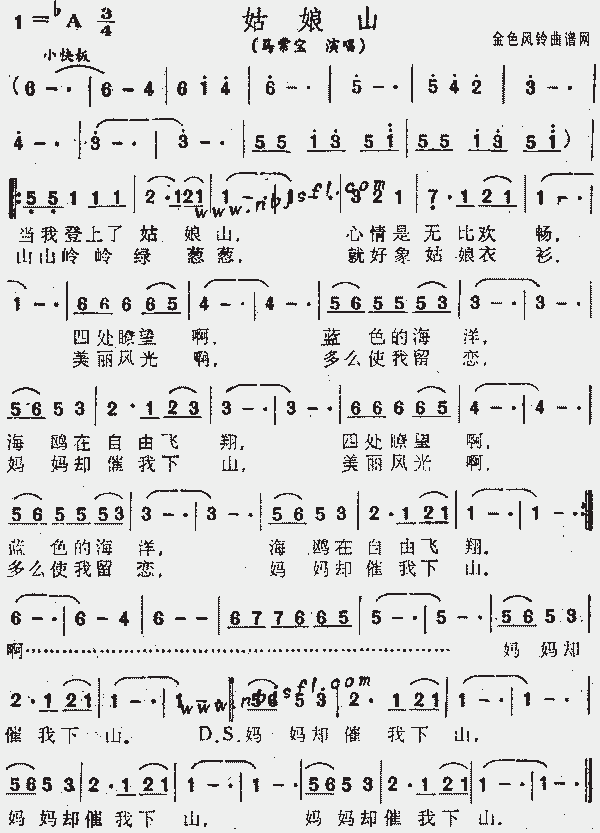 1=♭A 3/4
姑娘山
(马常宝 演唱)
金色风铃曲谱网
小快板
(6 - · | 6 - 4 | 6 1 4 | 6 - · | 5 - · | 5 4 2 | 3 - ·
4 - · | 3 - · | 3 - · | 5 5 1 3 5 1 | 5 5 1 3 5 1 )
5 5 1 1 1 | 2 · 1 2 1 | 1 - · | 1 - · | 3 2 1 | 7 · 1 2 1 | 1 - ·
www.nbjsfl.com
当我登上了 姑 娘 山, 心情是 无 比欢 畅,
山山岭岭 绿 葱 葱, 就好象 姑 娘衣 衫,
1 - · | 6 6 6 6 5 | 4 - · | 4 - · | 5 6 5 5 5 3 | 3 - · | 3 - ·
四处瞭望 啊, 蓝 色的海 洋,
美丽风光 啊, 多么使我留 恋,
5 6 5 3 | 2 · 1 2 3 | 3 - · | 3 - · | 6 6 6 6 5 | 4 - · | 4 - ·
海 鸥在 自由飞 翔, 四处瞭望 啊,
妈 妈却 催我下 山, 美丽风光 啊,
5 6 5 5 5 3 | 3 - · | 3 - · | 5 6 5 3 | 2 · 1 2 1 | 1 - · | 1 - · :
蓝 色的海 洋, 海 鸥在 自由飞 翔.
多么使我留 恋, 妈 妈却 催我下 山.
6 - · | 6 - 4 | 6 - - | 6 7 7 6 6 5 | 5 - · | 5 - · | 5 6 5 3
啊………… 妈 妈却
2 · 1 2 1 | 1 - · | 1 - · : 5 6 5 3 | 2 · 1 2 1 | 1 - · | 1 - ·
www.nbjsfl.com
催 我下 山. D.S.妈 妈却 催 我下 山,
5 6 5 3 | 2 · 1 2 1 | 1 - · | 1 - · | 5 6 5 3 | 2 · 1 2 1 | 1 - · | 1 - ·
妈 妈却催 我下 山, 妈 妈却催 我下 山.